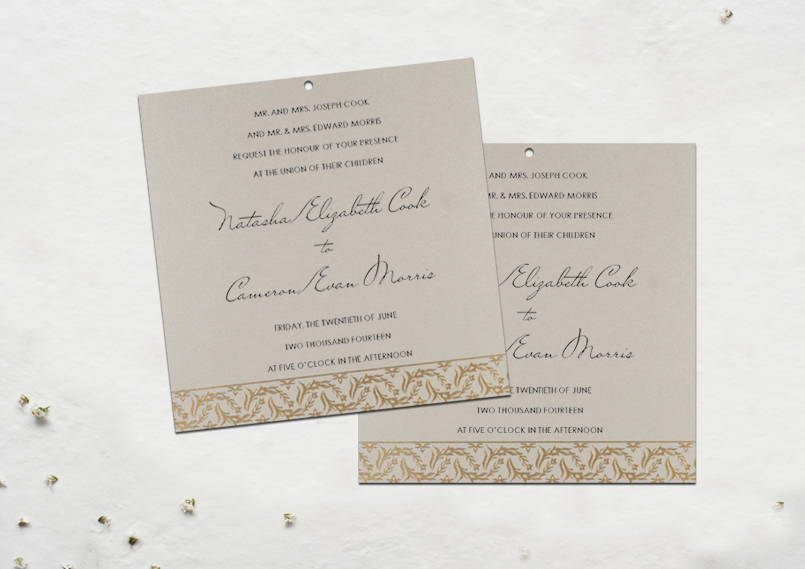 MR. AND MRS. JOSEPH COOK
AND MR. & MRS. EDWARD MORRIS
REQUEST THE HONOUR OF YOUR PRESENCE
AT THE UNION OF THEIR CHILDREN
Natasha Elizabeth Cook
to
Cameron Evan Morris
FRIDAY, THE TWENTIETH OF JUNE
TWO THOUSAND FOURTEEN
AT FIVE O"CLOCK IN THE AFTERNOON
AND MRS. JOSEPH COOK
R. & MRS. EDWARD MORRIS
HE HONOUR OF YOUR PRESENCE
UNION OF THEIR CHILDREN
Elizabeth Cook
to
Evan Morris
E TWENTIETH OF JUNE
TWO THOUSAND FOURTEEN
AT FIVE O"CLOCK IN THE AFTERNOON